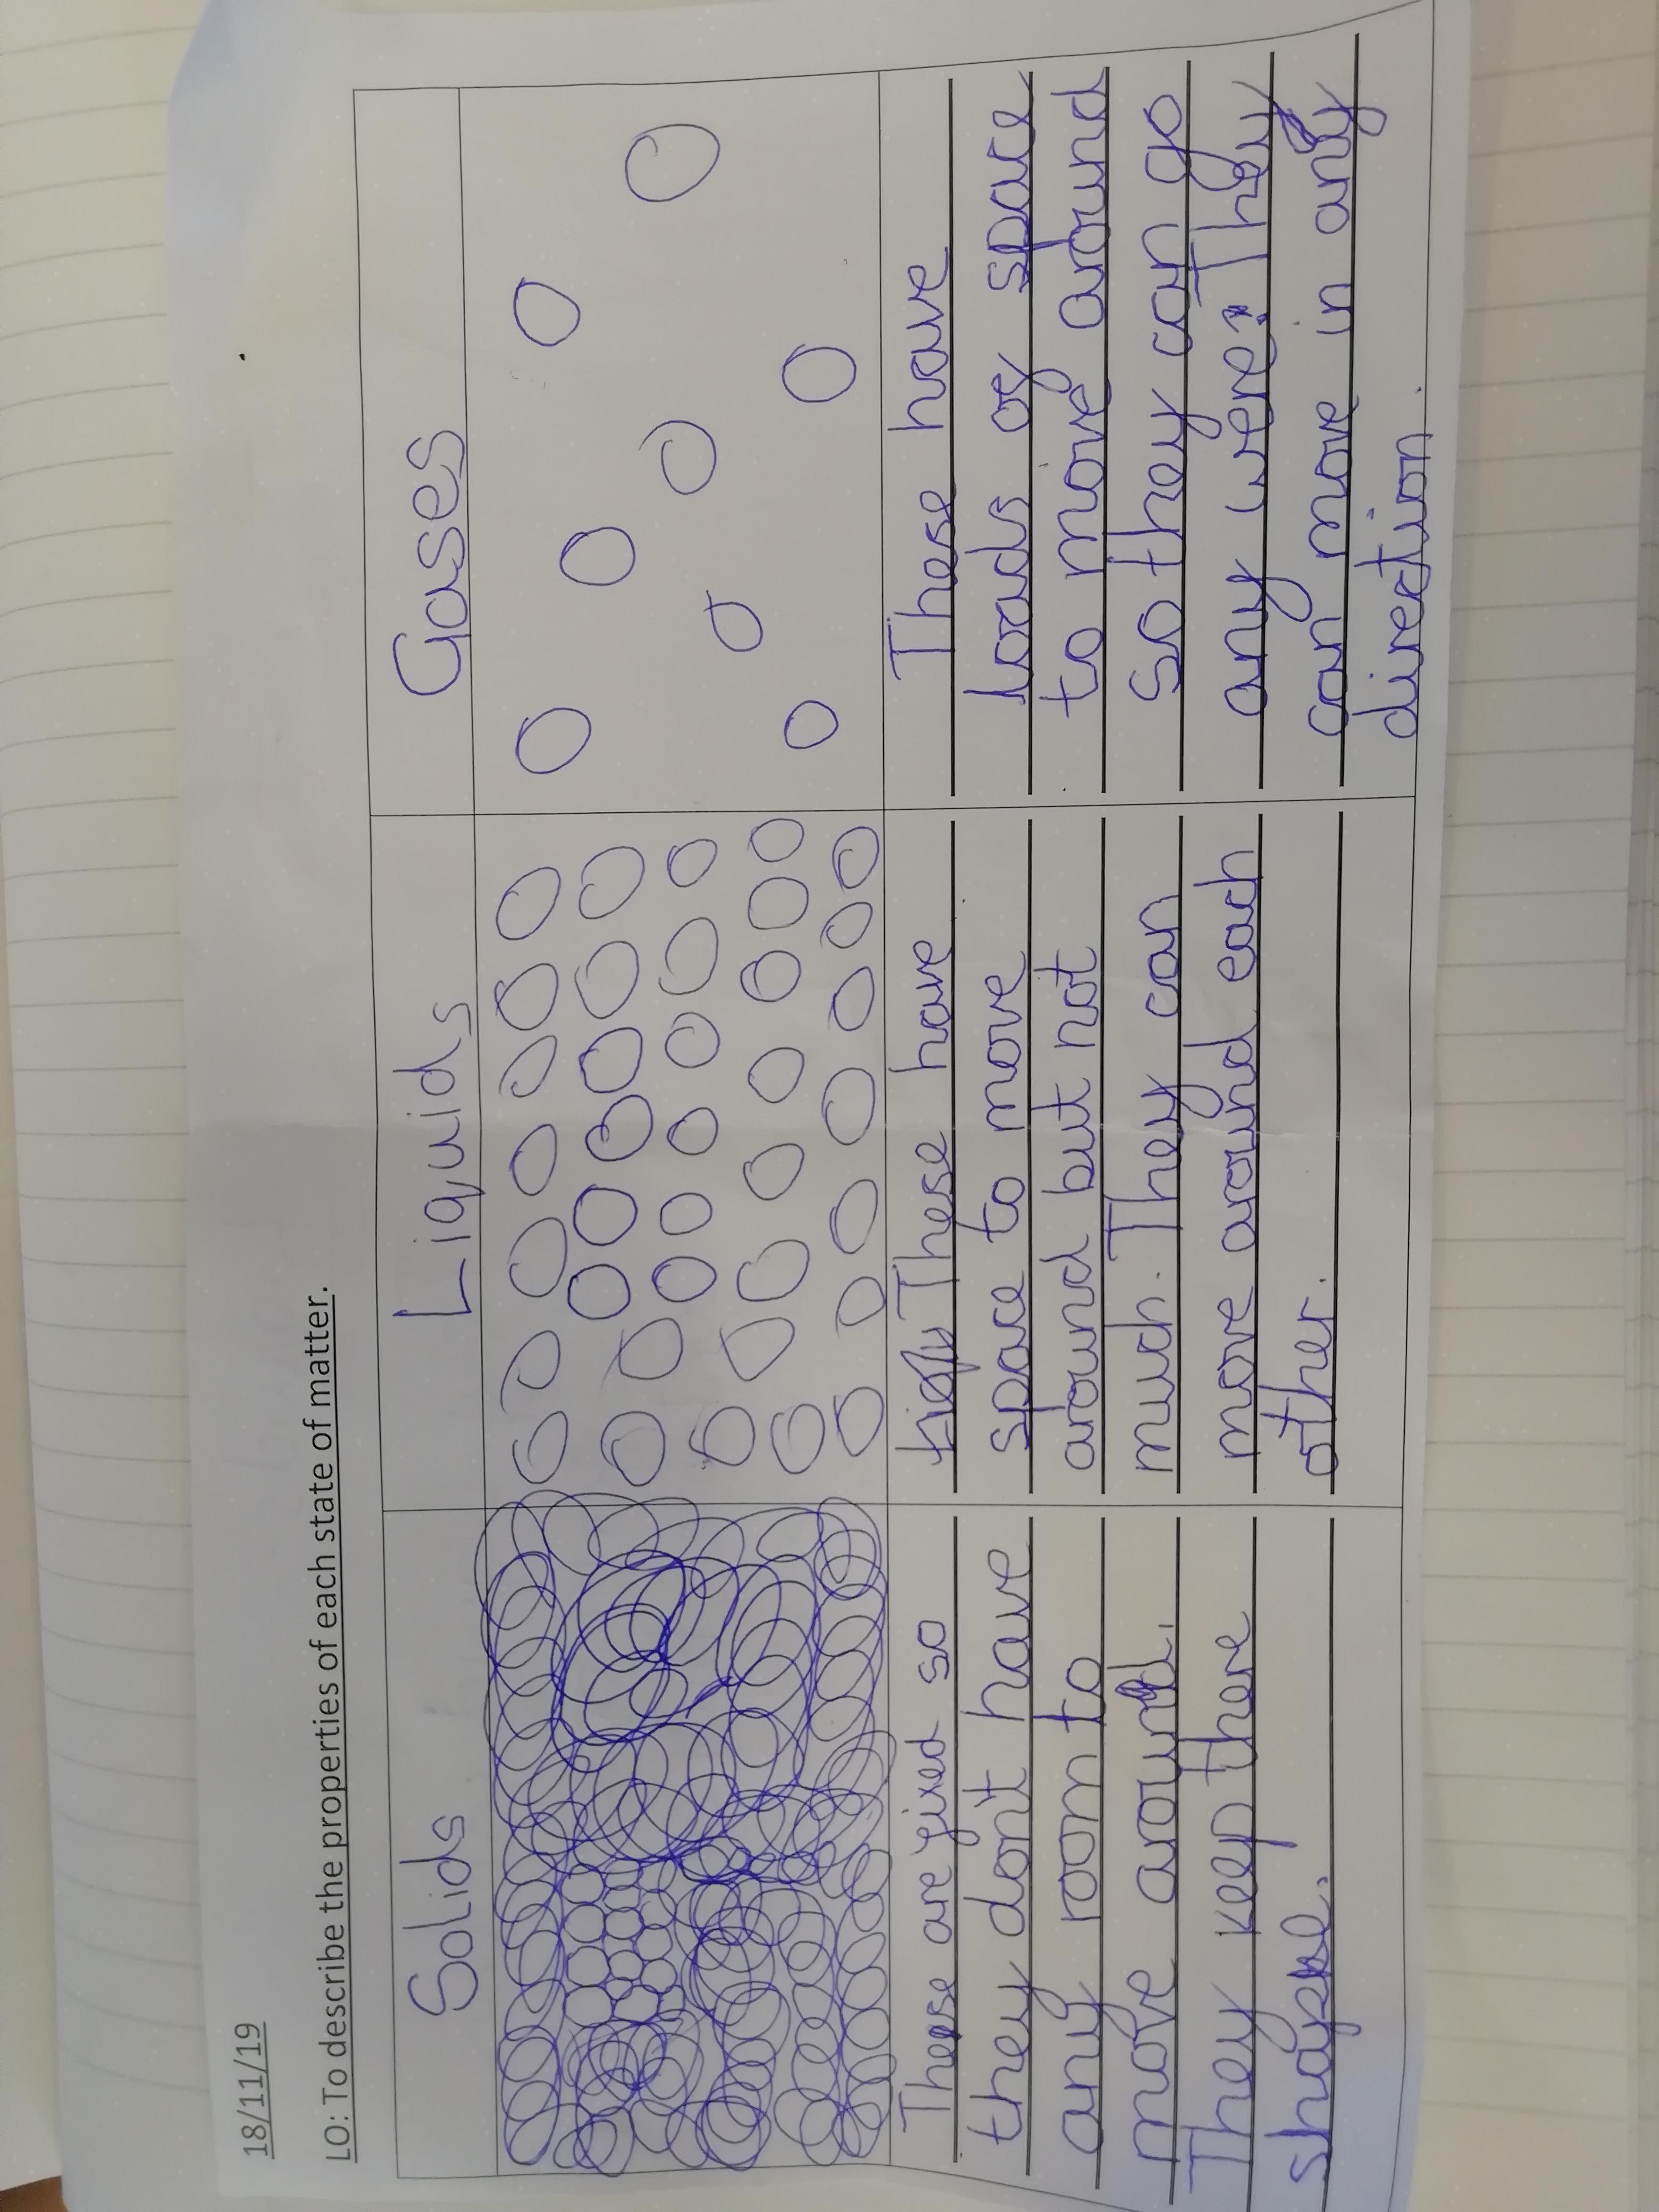 18/11/19
LO: To describe the properties of each state of matter.
Solids
These are fixed so
they don't have
any room to
move around.
They keep there
shape.
Liquids
These have
space to move
around but not
much. They can
move around each
other.
Gases
These have
loads of space
to move around
so they can go
any were. They
can move in any
direction.